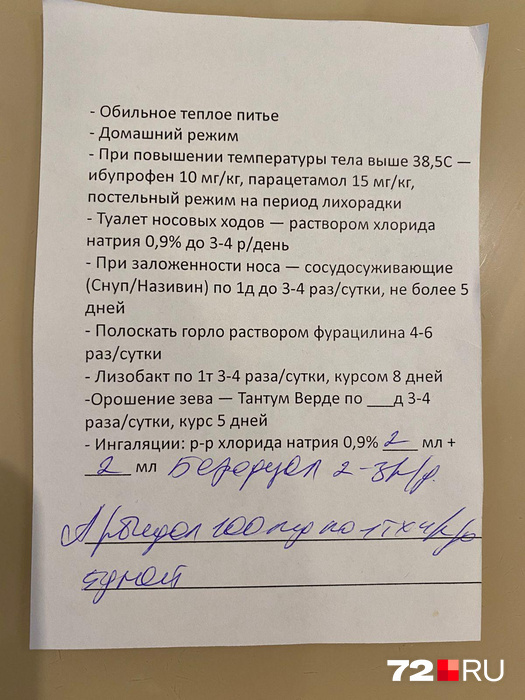 - Обильное теплое питье
- Домашний режим
- При повышении температуры тела выше 38,5С —
ибупрофен 10 мг/кг, парацетамол 15 мг/кг,
постельный режим на период лихорадки
- Туалет носовых ходов — раствором хлорида
натрия 0,9% до 3-4 р/день
- При заложенности носа — сосудосуживающие
(Снуп/Називин) по 1д до 3-4 раз/сутки, не более 5
дней
- Полоскать горло раствором фурацилина 4-6
раз/сутки
- Лизобакт по 1т 3-4 раза/сутки, курсом 8 дней
-Орошение зева — Тантум Верде по ___д 3-4
раза/сутки, курс 5 дней
- Ингаляции: р-р хлорида натрия 0,9% 2 мл +
2 мл Беродуал 2-3
Арбидол 100 по 1т х 4
72.RU